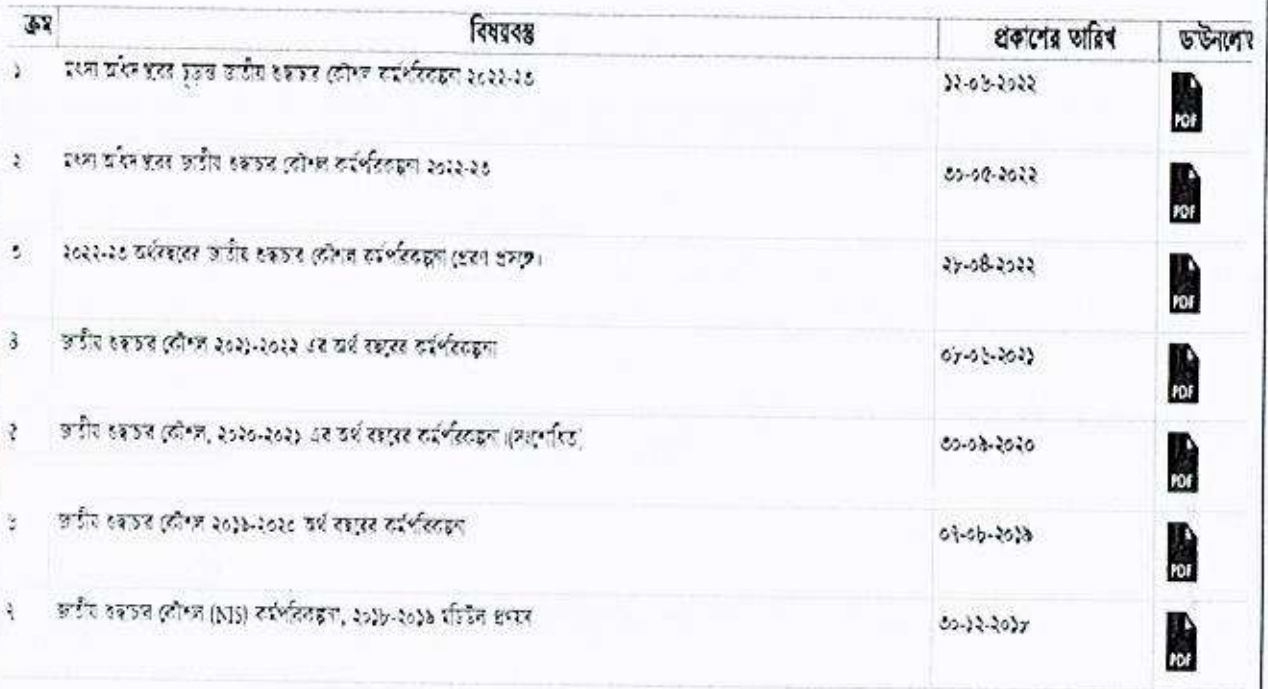 ক্রম বিষয়বস্তু প্রকাশের তারিখ ডাউনলোড
১ মৎস্য অধিদপ্তরের চূড়ান্ত জাতীয় শুদ্ধাচার কৌশল কর্মপরিকল্পনা ২০২২-২৩ ১২-০৬-২০২২ PDF
২ মৎস্য অধিদপ্তরের জাতীয় শুদ্ধাচার কৌশল কর্মপরিকল্পনা ২০২২-২৩ ৩০-০৫-২০২২ PDF
৩ ২০২২-২৩ অর্থবছরের জাতীয় শুদ্ধাচার কৌশল কর্মপরিকল্পনা প্রেরণ প্রসঙ্গে। ২৮-০৪-২০২২ PDF
৪ জাতীয় শুদ্ধাচার কৌশল ২০২১-২০২২ এর অর্থ বছরের কর্মপরিকল্পনা ০৮-০৬-২০২১ PDF
৫ জাতীয় শুদ্ধাচার কৌশল, ২০২০-২০২১ এর অর্থ বছরের কর্মপরিকল্পনা।(সংশোধিত) ৩০-০৯-২০২০ PDF
৬ জাতীয় শুদ্ধাচার কৌশল ২০১৯-২০২০ অর্থ বছরের কর্মপরিকল্পনা ০৭-০৮-২০১৯ PDF
৭ জাতীয় শুদ্ধাচার কৌশল (NIS) কর্মপরিকল্পনা, ২০১৮-২০১৯ মডিউল ৩০-১২-২০১৮ PDF